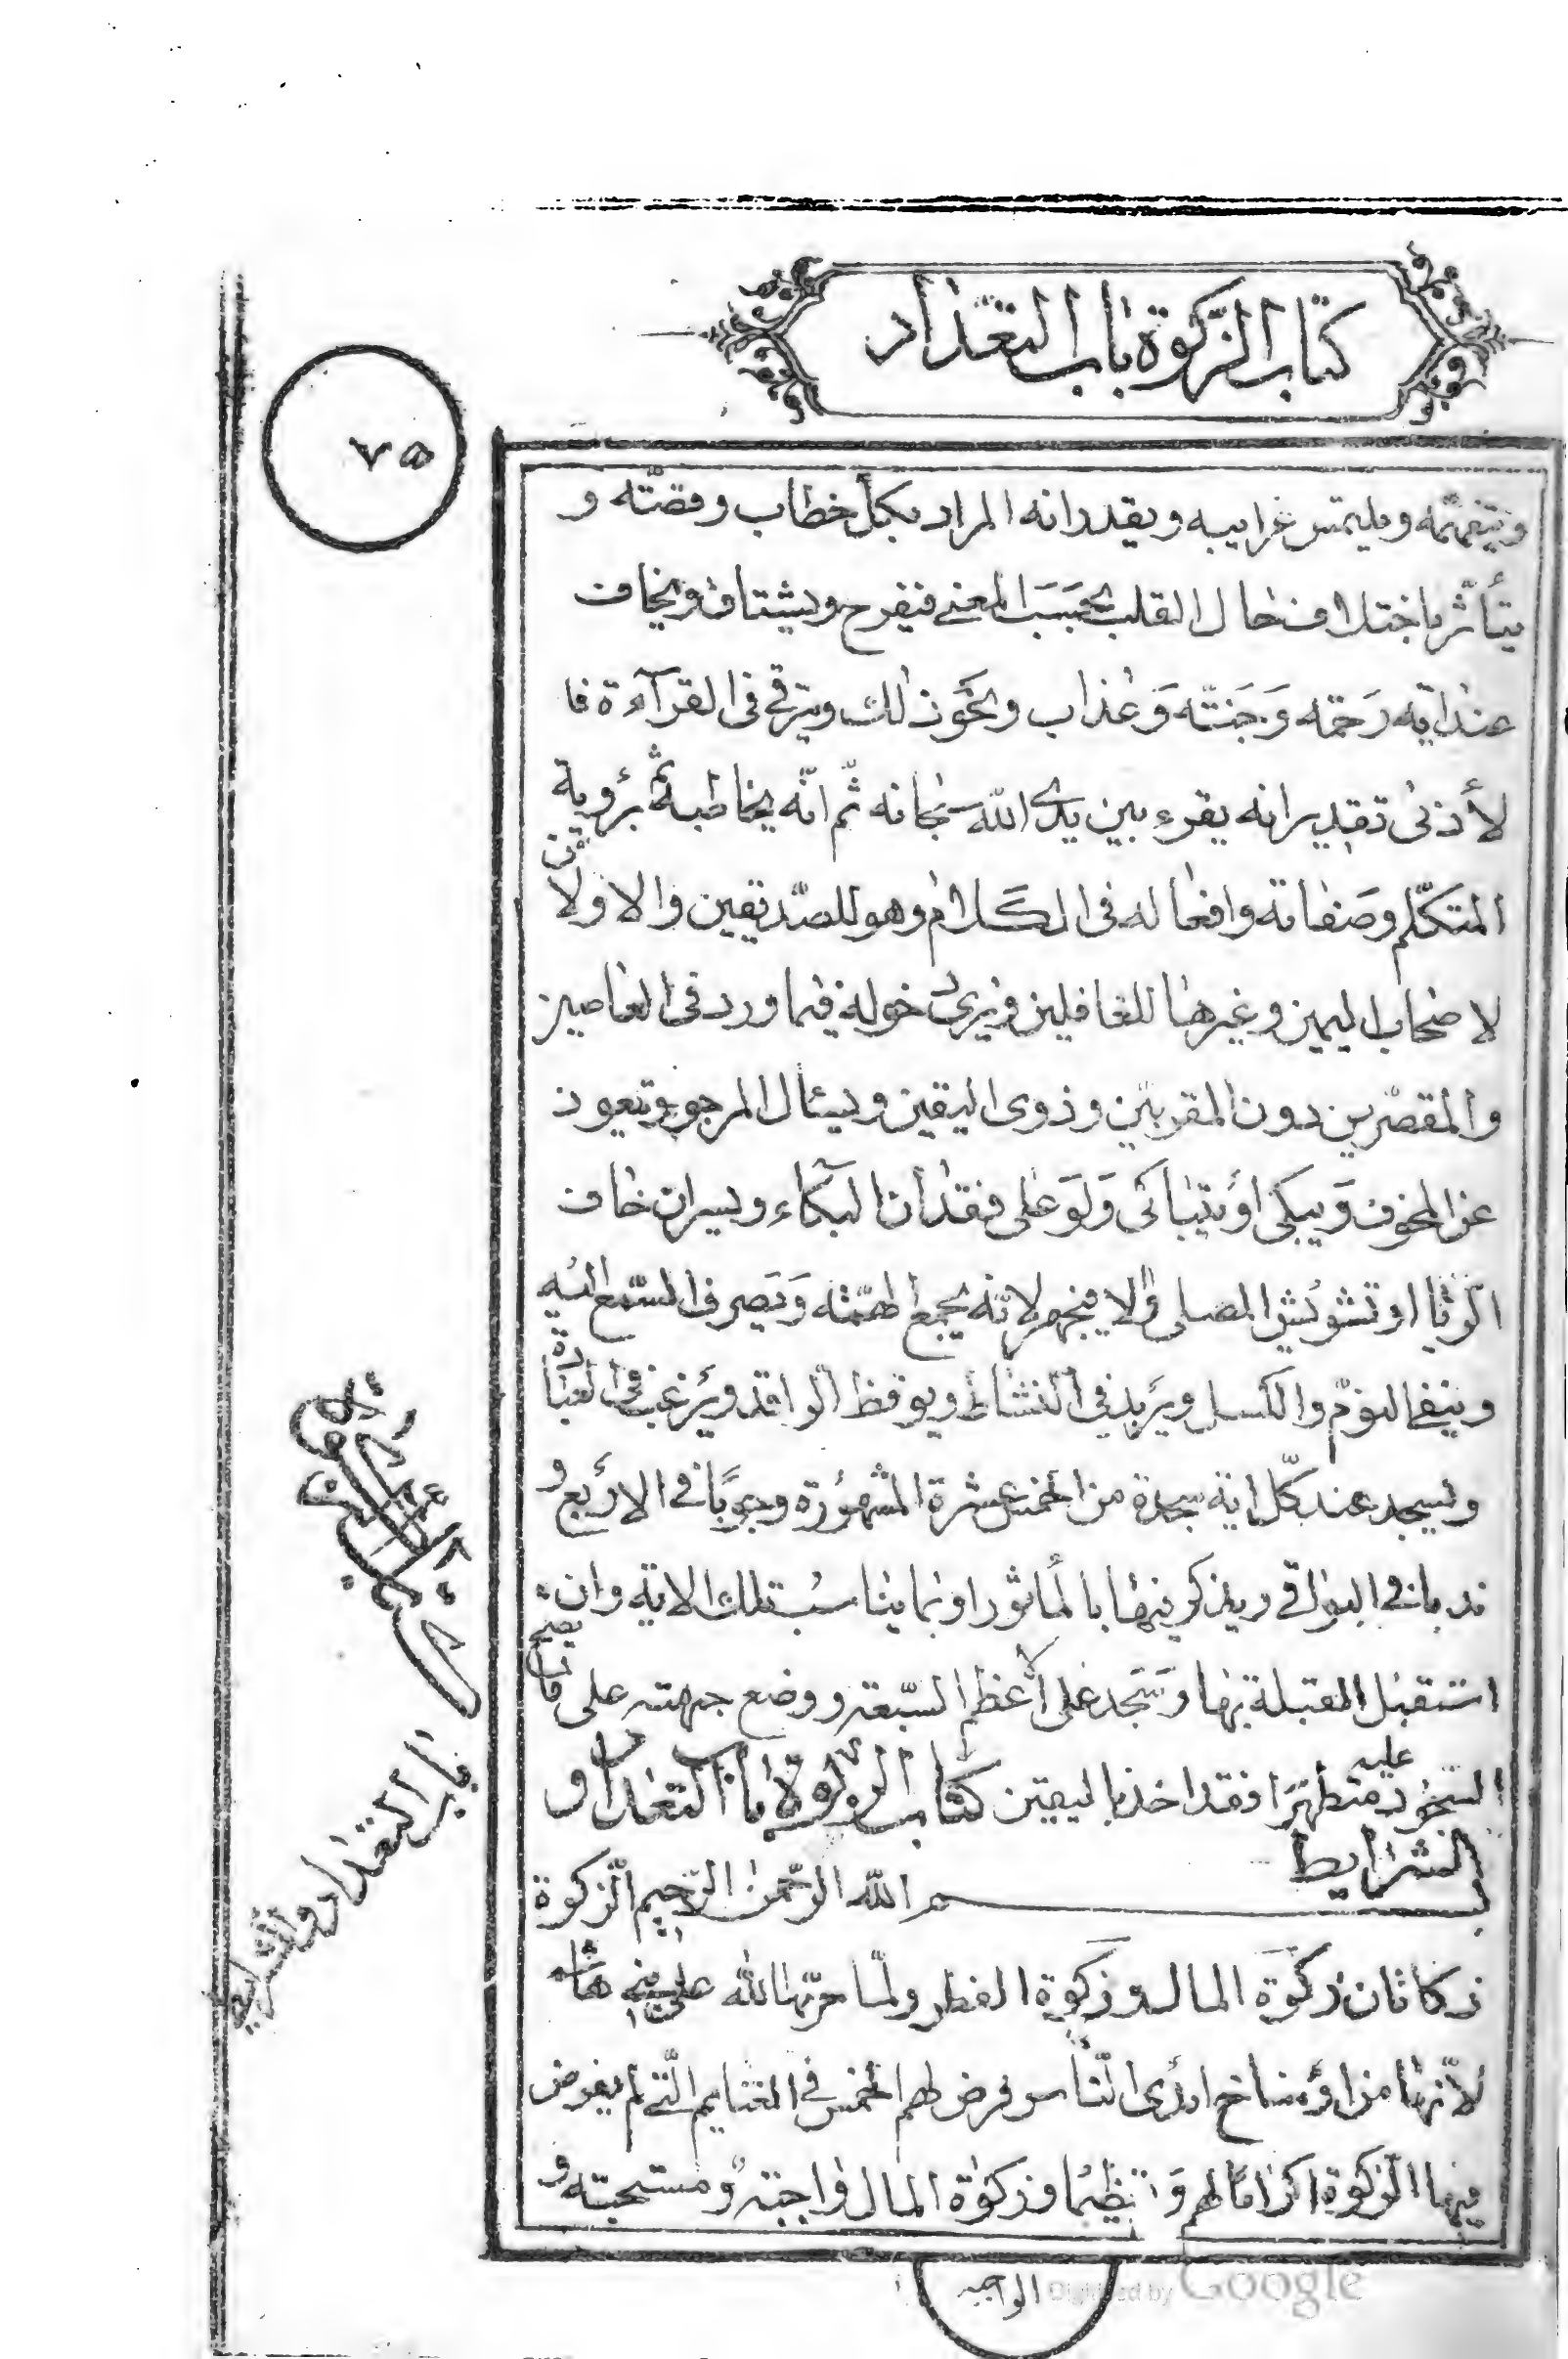 كتاب الزكوة باب التعداد
٧٥
ويتفهمه ويلتمس غرايبه ويقدر انه المراد بكل خطاب وقصّته و
يتأثّر باختلاف حال القلب بحَسَب المعنى فيفرح ويشتاق ويخاف
عند ايه رَحمته وَجَنّته وَعذاب ونحو ذلك ويترقى فى القرآءة فا
لأدنى تقدير انه يقرء بين يدى الله سبحانه ثّم انّه يخاطبه ثم برؤية
المتكلّم وصَفاته وافعاله فى الكلام وهو للصّديقين والاولان
لاصحاب اليمين وغيرها للغافلين ويرى دخوله فيما ورد فى العاصين
والمقصّرين دون المقربين وذوى اليقين ويسئال المرجو ويتعوذ
عن المخوف وَيبكى اوْ يتباكى وَلَو على فقدان البكآء ويسر ان خاف
الّريا او تشويش المصلى والا فيجهر لانّه يجمع الهمّته وَيَصرف السّمع اليه
وينفى النومّ والكسل ويزيد فى النشاط ويوقظ الراقد ويرغب فى العبادة
ويسجد عند كلّ اية سجدة من الخمس عشرة المشهورة وجوبًا فى الاربع و
ندبا فى البواقى ويذكر فيها بالمأثور او بما يناسب تلك الاية وان
استقبل القبلة بها وَسَجَد على الأعظم السّبعة ووضع جبهته على ما يصح
السّجود عليه متطهرًا فقد اخذ باليقين كتاب الزكوة باب التعداد و
الشرايط
بسم الله الرحمن الرّحيم الّزكوة
زكاتان زكوة المال وزكوة الفطر ولمّا حرّمها الله على بنى هاشم
لأنّها من اوساخ ايدى النّاس فرض لهم الخمس فى الغنايم الّتى لم يفرض
فيها الّزكوة اكرامًا لهم وَتعظيمًا وزكوة المال واجبة ومستحبّة و
الواجبه
باب التعداد والشرايط